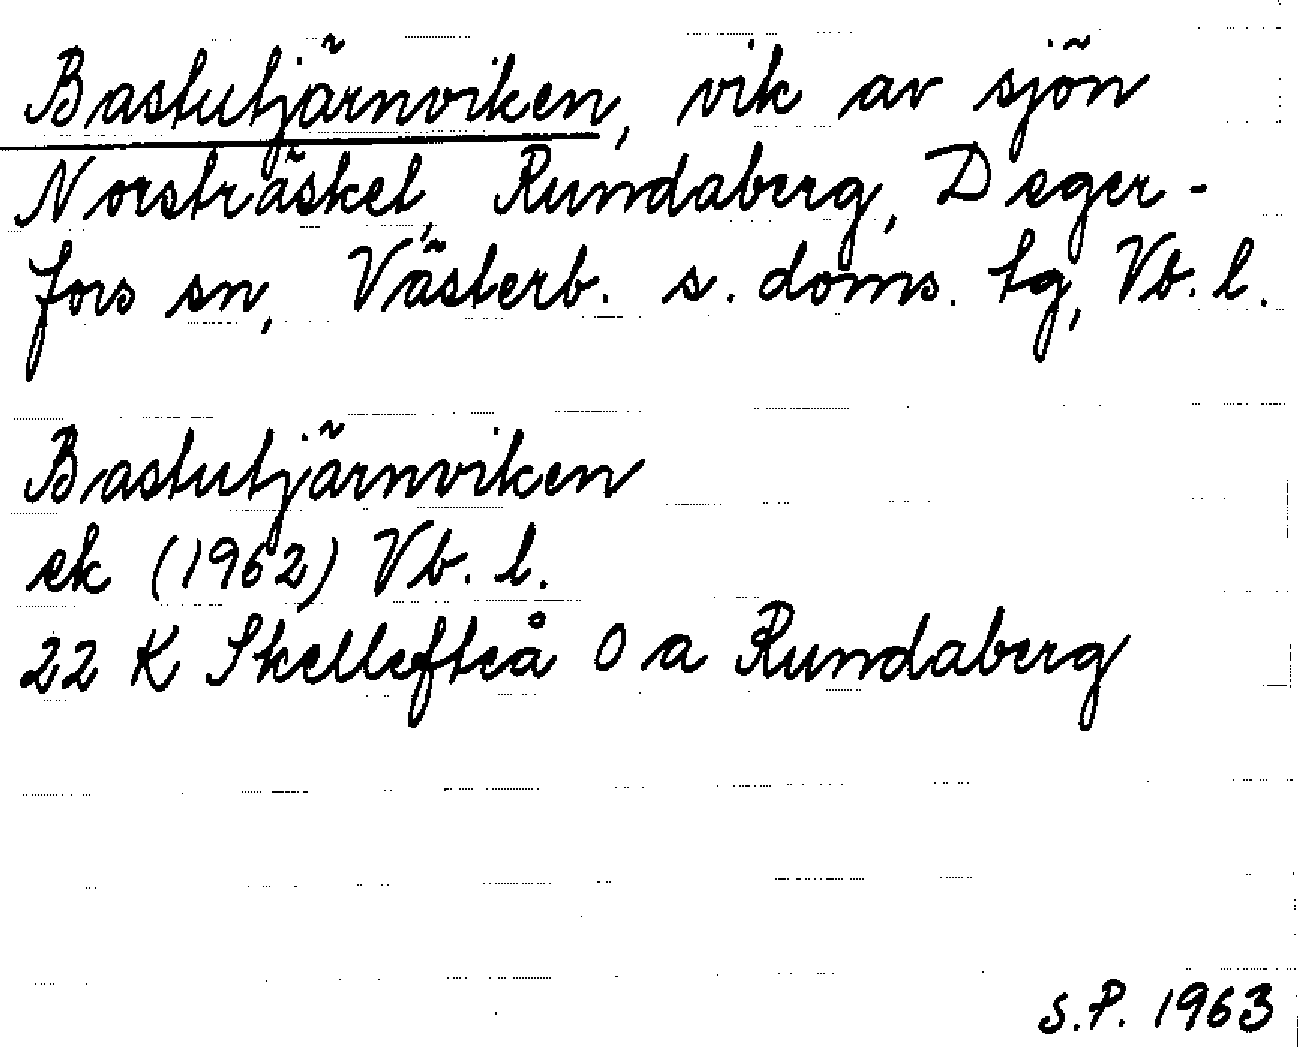 Bastutjärnviken, vik av sjön
Norsträsket, Rundaberg, Deger-
fors sn, Västerb. s. doms. tg, Vb. l.
Bastutjärnviken
ek (1962) Vb. l.
22 K Skellefteå 0 a Rundaberg
S.P. 1963